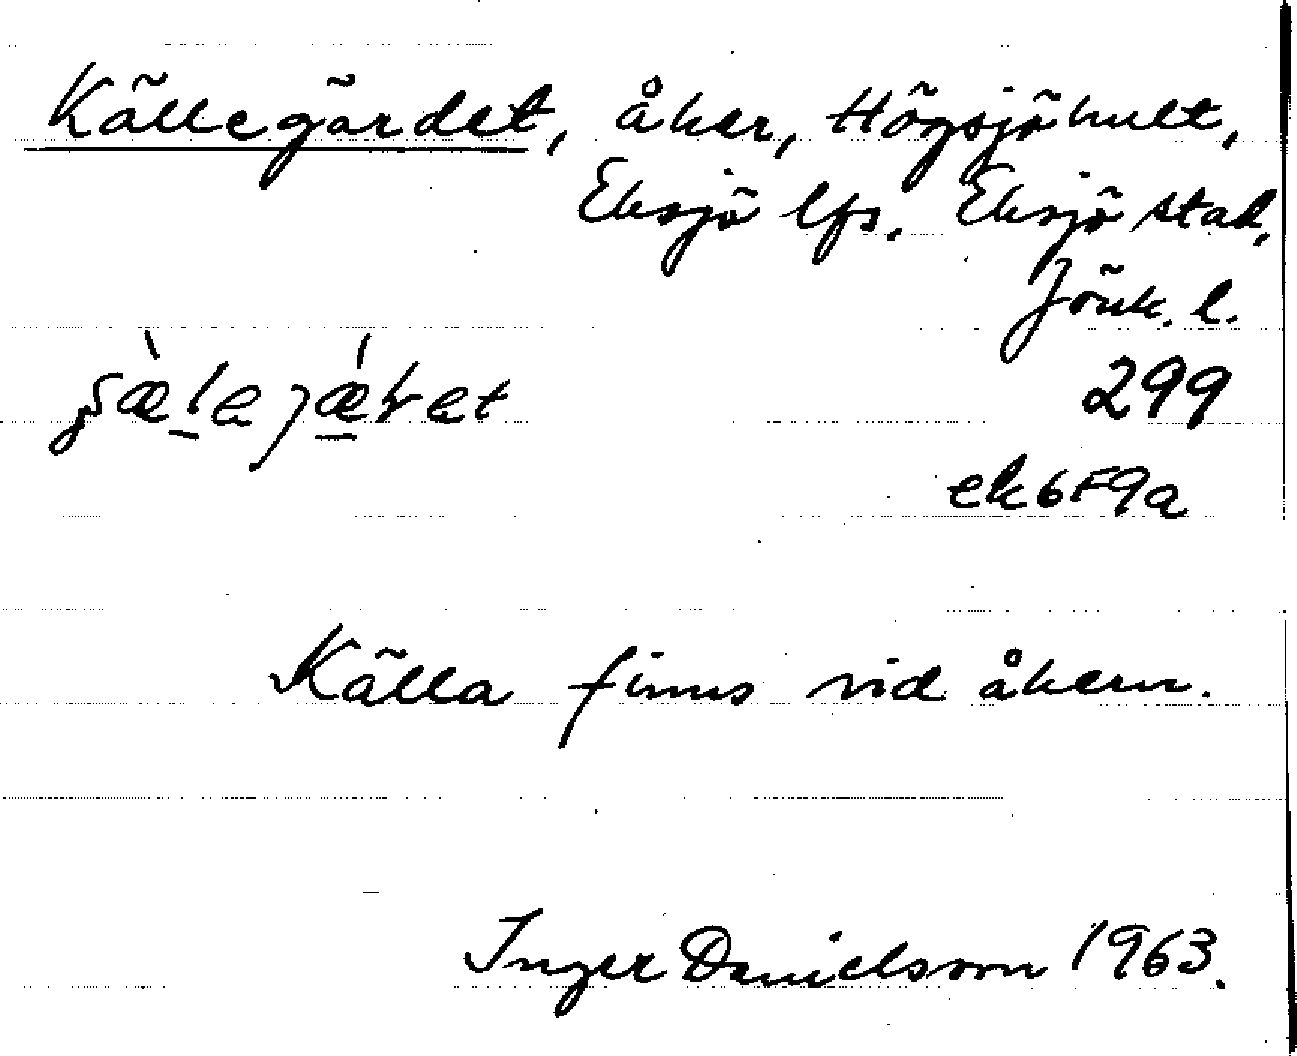 Källegärdet, åker, Högsjöhult,
Eksjö lfs. Eksjö stad,
Jönk. l.
299
ek6F9a
Källa finns vid åkern.
Inger Danielsson 1963.